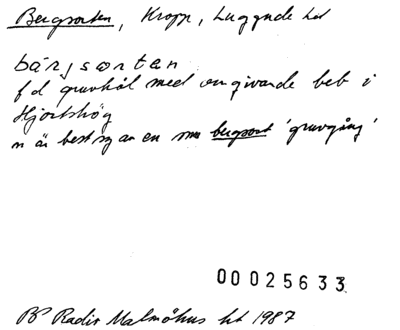 Bergsorten, Kropp, Luggude hd
bärjsorten
f d gruvhål med omgivande beb i
Hjortshög
n är best sg av en sms bergsort 'gruvgång'
00025633
BP Radio Malmöhus ht 1987